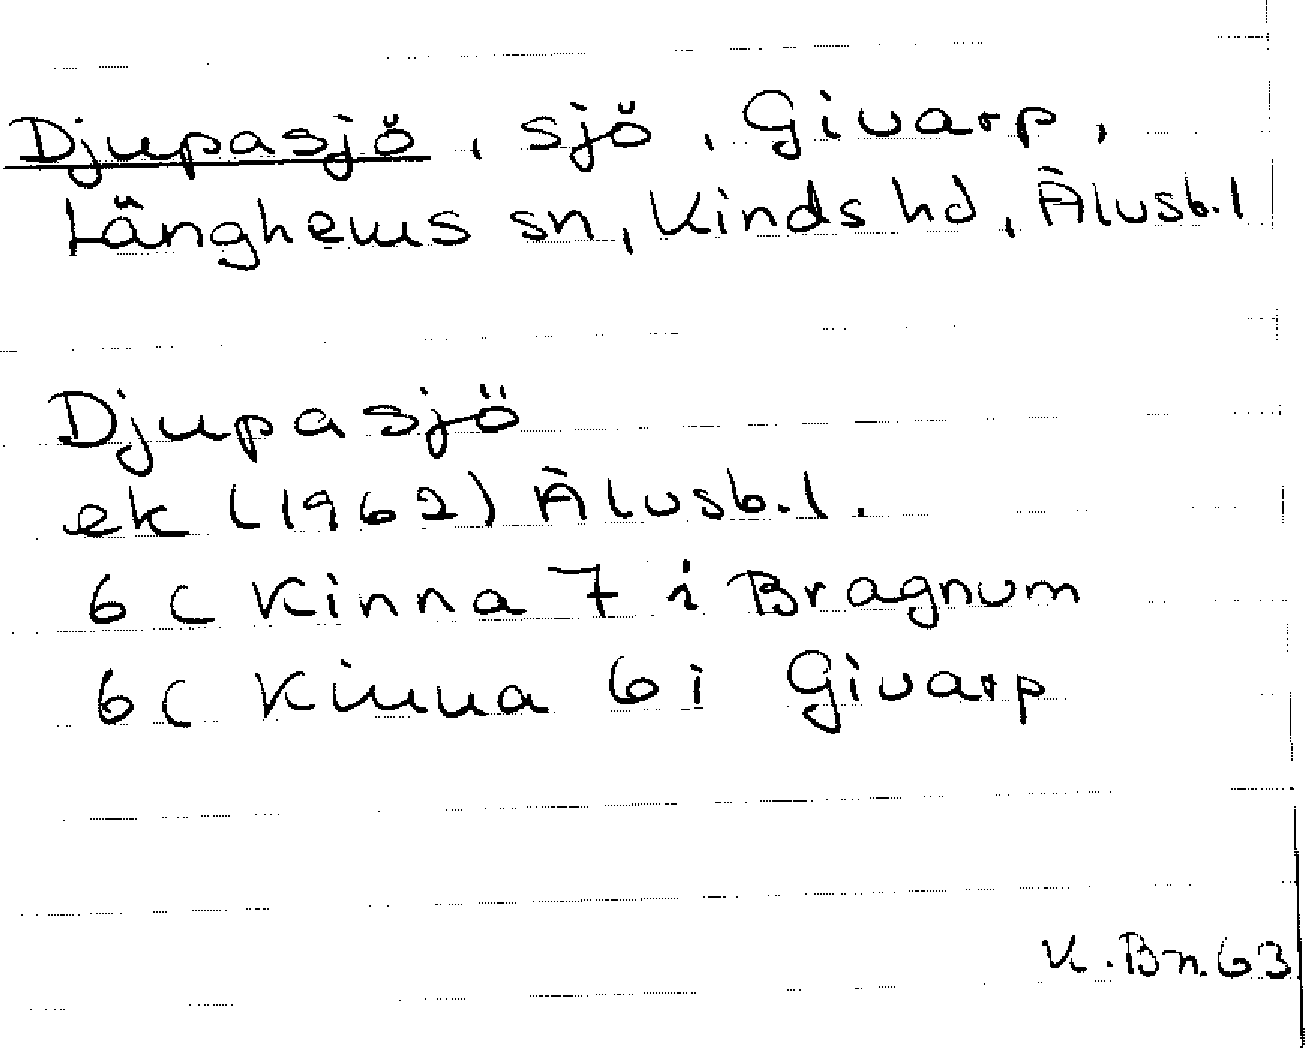 Djupasjö, sjö, Givarp,
Länghems sn, Kinds hd, Älvsb.l
Djupasjö
ek (1962) Älvsb.l.
6 C Kinna 7 i Bragnum
6 C Kinna 6 i Givarp
K.Bn.63